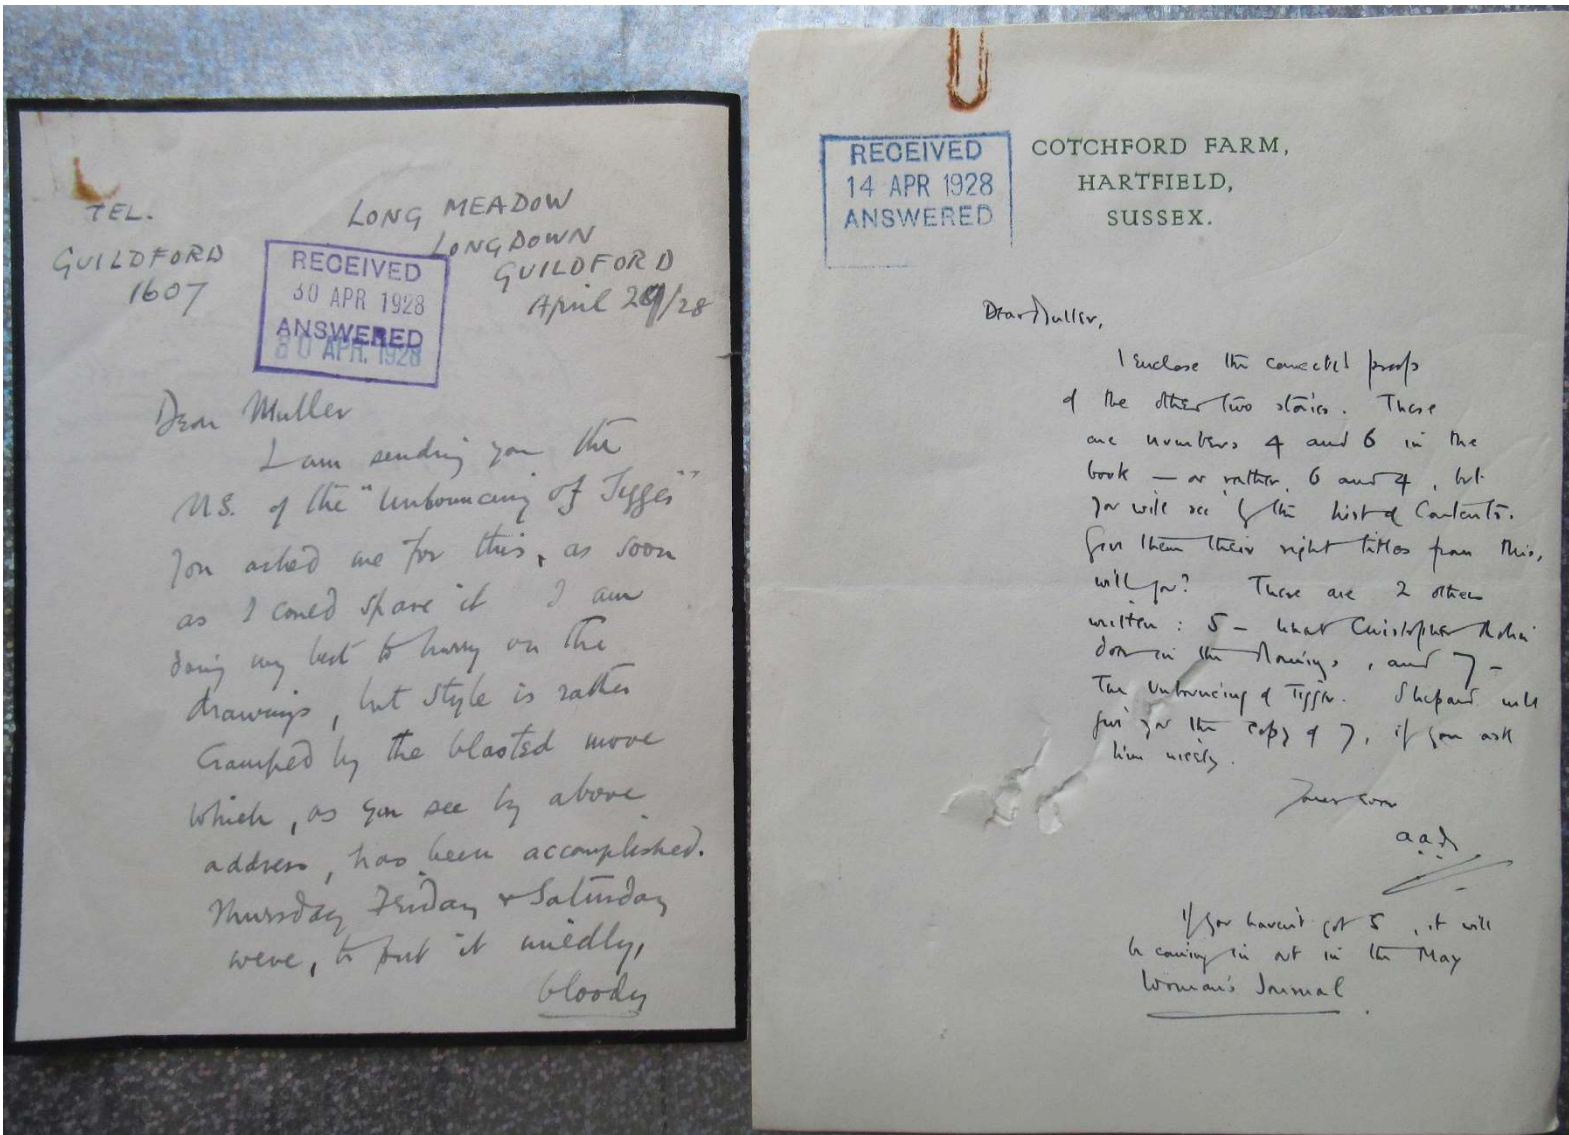 TEL.
GUILDFORD
1607
LONG MEADOW
LONGDOWN
GUILDFORD
April 29/28
RECEIVED
30 APR 1928
ANSWERED
30 APR. 1928
Dear Muller
I am sending you the
MS. of the "Unbouncing of Tigger"
You asked me for this, as soon
as I could spare it I am
doing my best to hurry on the
drawings, but style is rather
cramped by the blasted move
which, as you see by above
address, has been accomplished.
Thursday Friday & Saturday
were, to put it mildly,
bloody
RECEIVED
14 APR 1928
ANSWERED
COTCHFORD FARM,
HARTFIELD,
SUSSEX.
Dear Muller,
I enclose the corrected proofs
of the other two stories. These
are numbers 4 and 6 in the
book — or rather, 6 and 4, but
you will see by the list of Contents.
Give them their right titles from this,
will you? There are 2 others
written: 5 – What Christopher Robin
does in the Mornings, and 7 –
The Unbouncing of Tigger. Shepard will
give you the copy of 7, if you ask
him nicely.
Yours ever
a.a.m
If you haven't got 5, it will
be coming in out in the May
Woman's Journal